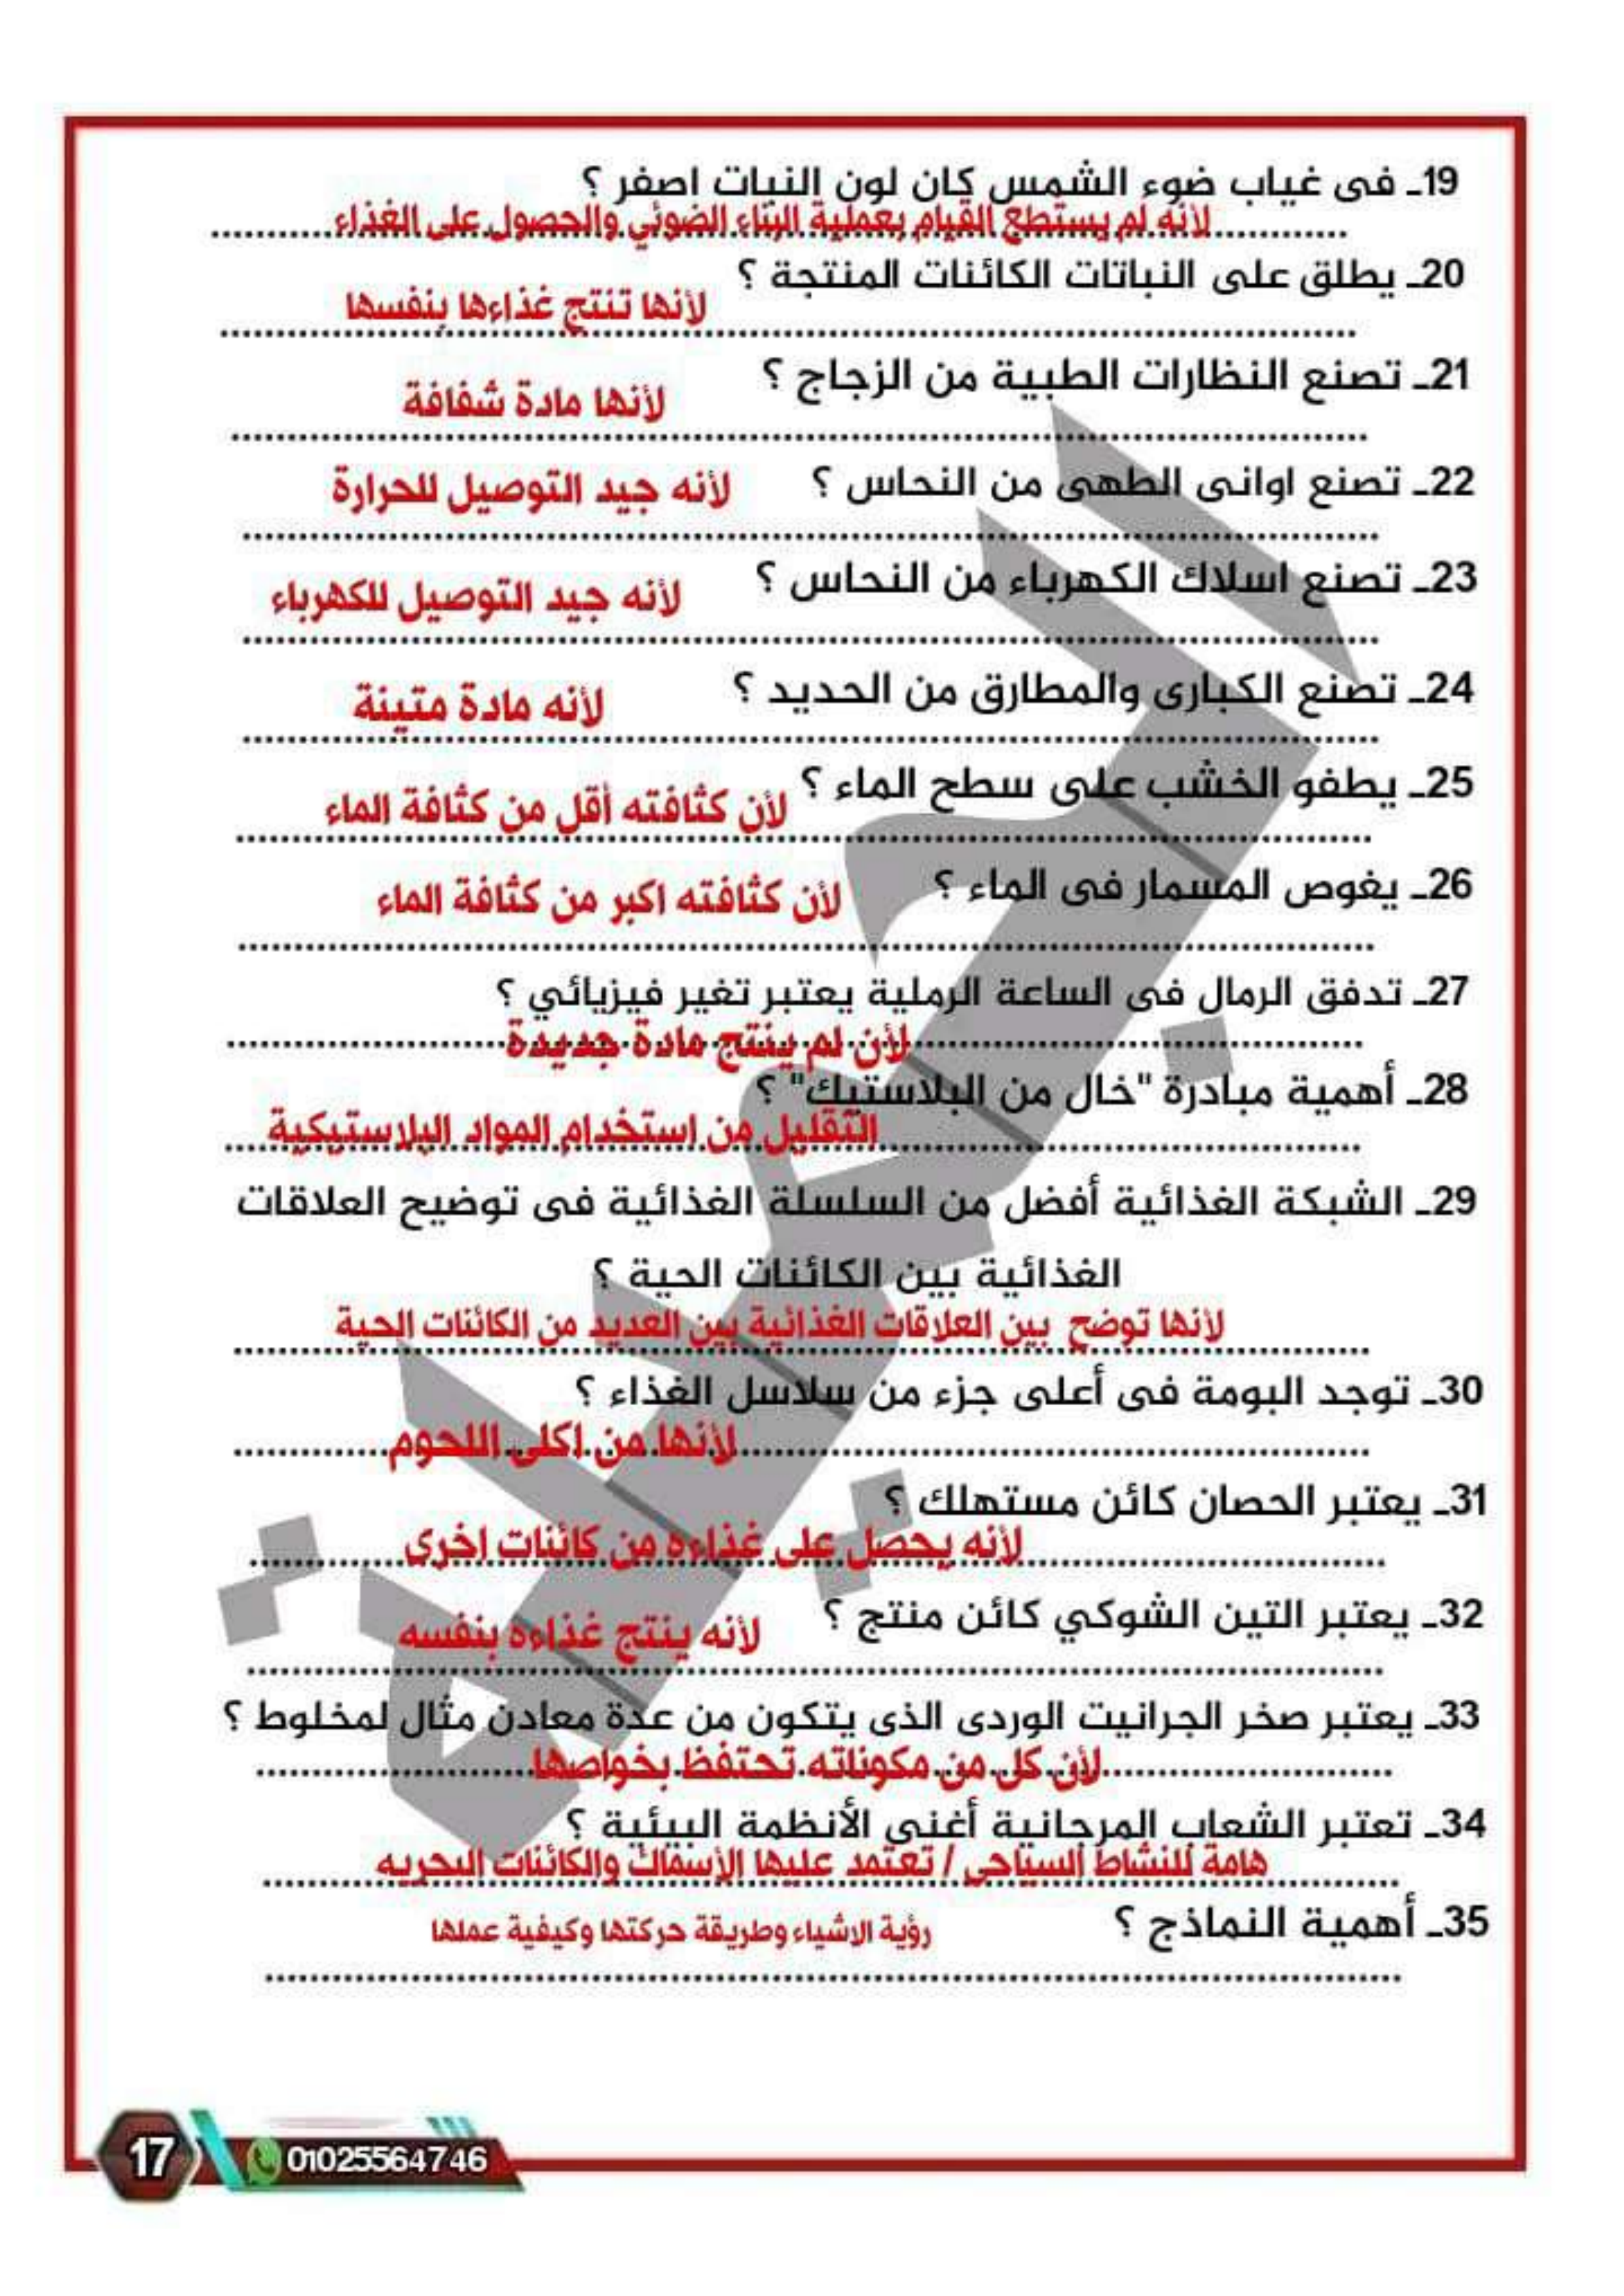 19ـ فى غياب ضوء الشمس كان لون النبات اصفر ؟
لأنه لم يستطع القيام بعملية البناء الضوئي والحصول على الغذاء
20ـ يطلق على النباتات الكائنات المنتجة ؟
لأنها تنتج غذاءها بنفسها
21ـ تصنع النظارات الطبية من الزجاج ؟
لأنها مادة شفافة
22ـ تصنع اوانى الطهى من النحاس ؟ لأنه جيد التوصيل للحرارة
23ـ تصنع اسلاك الكهرباء من النحاس ؟
لأنه جيد التوصيل للكهرباء
24ـ تصنع الكبارى والمطارق من الحديد ؟
لأنه مادة متينة
25ـ يطفو الخشب على سطح الماء ؟
لأن كثافته أقل من كثافة الماء
26ـ يغوص المسمار فى الماء ؟
لأن كثافته اكبر من كثافة الماء
27ـ تدفق الرمال فى الساعة الرملية يعتبر تغير فيزيائي ؟
لأن لم ينتج مادة جديدة
28ـ أهمية مبادرة "خال من البلاستيك" ؟
التقليل من استخدام المواد البلاستيكية
29ـ الشبكة الغذائية أفضل من السلسلة الغذائية فى توضيح العلاقات
الغذائية بين الكائنات الحية ؟
لأنها توضح بين العلاقات الغذائية بين العديد من الكائنات الحية
30ـ توجد البومة فى أعلى جزء من سلاسل الغذاء ؟
لأنها من اكلى اللحوم
31ـ يعتبر الحصان كائن مستهلك ؟
لأنه يحصل على غذاءه من كائنات اخرى
32ـ يعتبر التين الشوكي كائن منتج ؟
لأنه ينتج غذاءه بنفسه
33ـ يعتبر صخر الجرانيت الوردى الذى يتكون من عدة معادن مثال لمخلوط ؟
لأن كل من مكوناته تحتفظ بخواصها
34ـ تعتبر الشعاب المرجانية أغنى الأنظمة البيئية ؟
هامة للنشاط السياحى / تعتمد عليها الأسماك والكائنات البحريه
35ـ أهمية النماذج ؟
رؤية الاشياء وطريقة حركتها وكيفية عملها
17
01025564746